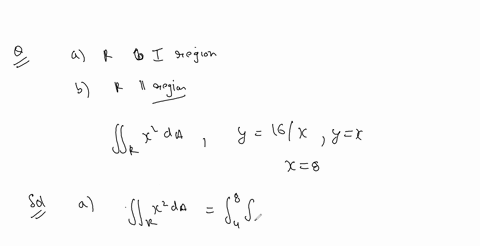 Q a) R I region
b) R II region
∬_R x² dA , y = 16/x , y=x
x=8
Sol a) ∬_R x² dA = ∫_4^8 ∫